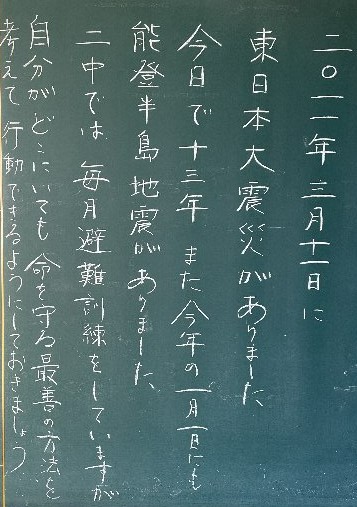 二〇一一年 三月十一日に
東日本大震災がありました
今日で十三年 また今年の一月一日にも
能登半島地震がありました、
二中では 毎月避難訓練をしていますが
自分がどこにいても 命を守る最善の方法を
考えて行動できるようにしておきましょう